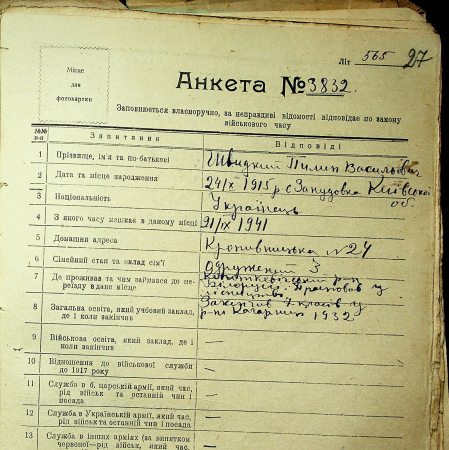 Літ 565 27
Місце
для
фотокартки
Анкета № 3832.
Заповнюється власноручно, за неправдиві відомості відповідає по закону
військового часу
№№ п-п Запитання Відповіді
1 Прізвище, ім'я та по-батькові Швидкий Пилип Васильович
2 Дата та місце народження 24/IX 1915 р с. Київської
об.
3 Національність Українець
4 З якого часу мешкає в даному місті /IX 1941
5 Домашня адреса Кропивницька № 24
6 Сімейний стан та склад сім'ї Одружений 3
7 Де проживав та чим займався до пе-
реїзду в дане місце р-н
працював у
8 Загальна освіта, який учбовий заклад,
де і коли закінчив Закінчив 7 класів у
1932
9 Військова освіта, який заклад, де і
коли закінчив —
10 Відношення до військової служби
до 1917 року —
11 Служба в б. царській армії, який час,
рід військ та останній чин і
посада —
12 Служба в Українській армії, який час,
рід військ та останній чин і посада —
13 Служба в інших арміях (за винятком
червоної—рід військ, який час, —